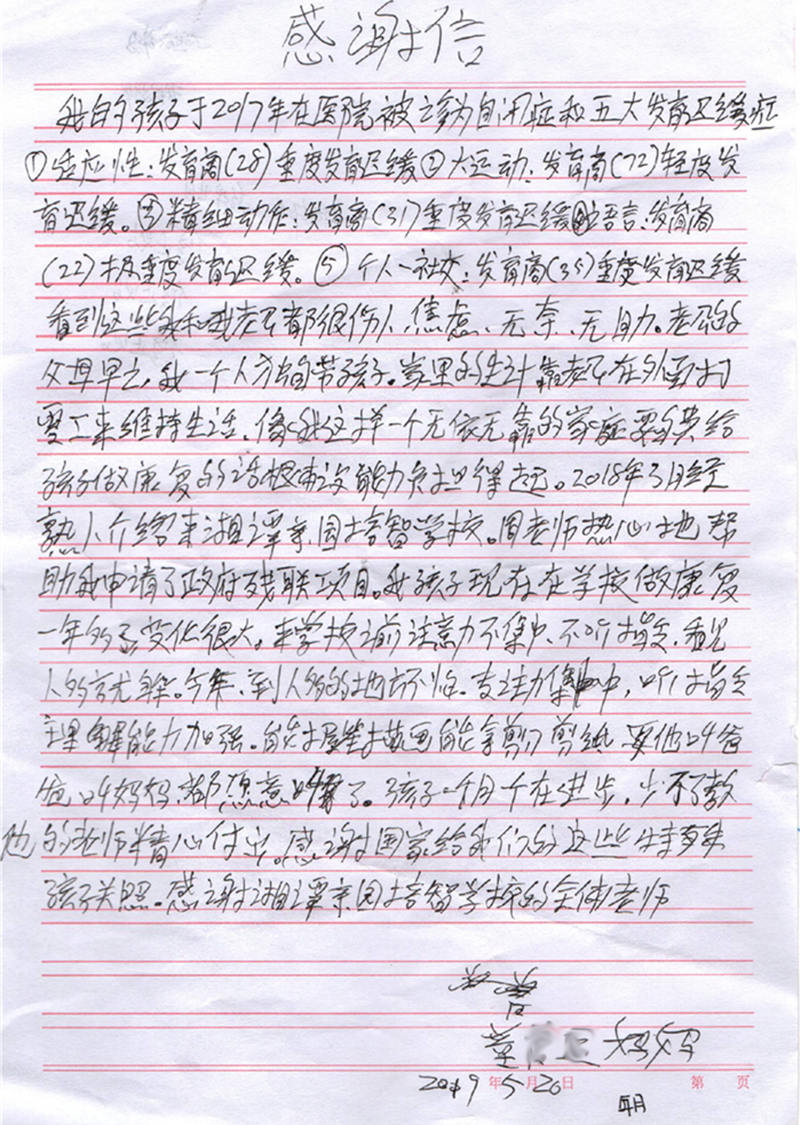 感谢信
我的孩子于2017年在医院被诊为自闭症和五大发育迟缓症
①适应性：发育商(28)重度发育迟缓②大运动：发育商(72)轻度发
育迟缓。③精细动作：发育商(31)重度发育迟缓④语言：发育商
(22)极重度发育迟缓。⑤个人-社交：发育商(35)重度发育迟缓
看到这些我和我老公都很伤心、焦虑、无奈、无助。老公的
父母早亡，我一个人独自带孩子。家里的生计靠老公在外面打
零工来维持生活、像我这样一个无依无靠的家庭要自费给
孩子做康复的话根本没能力负担得起。2018年3月经
熟人介绍来湘潭亲园培智学校。周老师热心地帮
助我申请了政府残联项目。我孩子现在在学校做康复
一年多了变化很大。来学校之前注意力不集中、不听指令，看见
人多就躲。今年、到人多的地不怕。专注力集中，听指令
理解能力加强。能握笔描画能拿剪刀剪纸 要他叫爸
爸叫妈妈，都愿意叫了。孩子一个月个在进步，少不了教
他的老师精心付出。感谢国家给我们的这些特殊
孩子关照。感谢湘潭亲园培智学校的全体老师
妈妈
2019年5月20日
第 页
年月